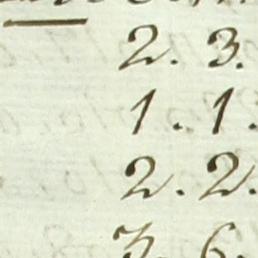 2. 3.
1. 1.
2. 2.
3. 6.